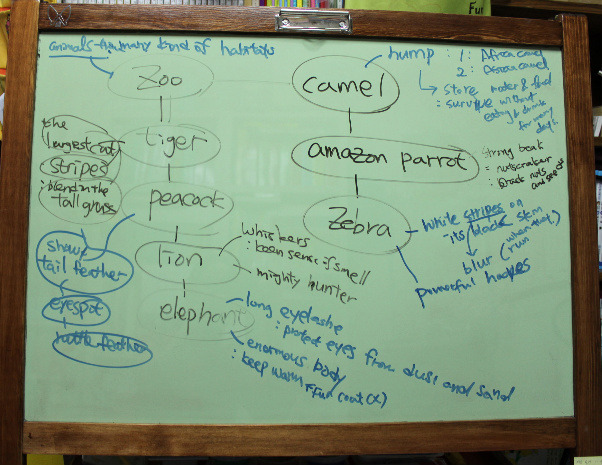 Fur
animals-
kind of habitats
Zoo
the
largest cat
stripes
: blend in the
tall grass
tiger
peacock
shake
tail feather
eyespot
rattle feather
lion
whiskers
: keen sense of smell
mighty hunter
elephant
long eyelashe
: protect eyes from dust and sand
enormous body
: keep warm
fur coat (x)
camel
hump : 1 : Africa camel
2 : Asian camel
store water & food
: survive without
eating & drink
for many
days
amazon parrot
strong beak
= nutcracker
: crack nuts
and seeds
Zebra
white stripes on
its black skin
blur (
run
when
)
powerful hooves